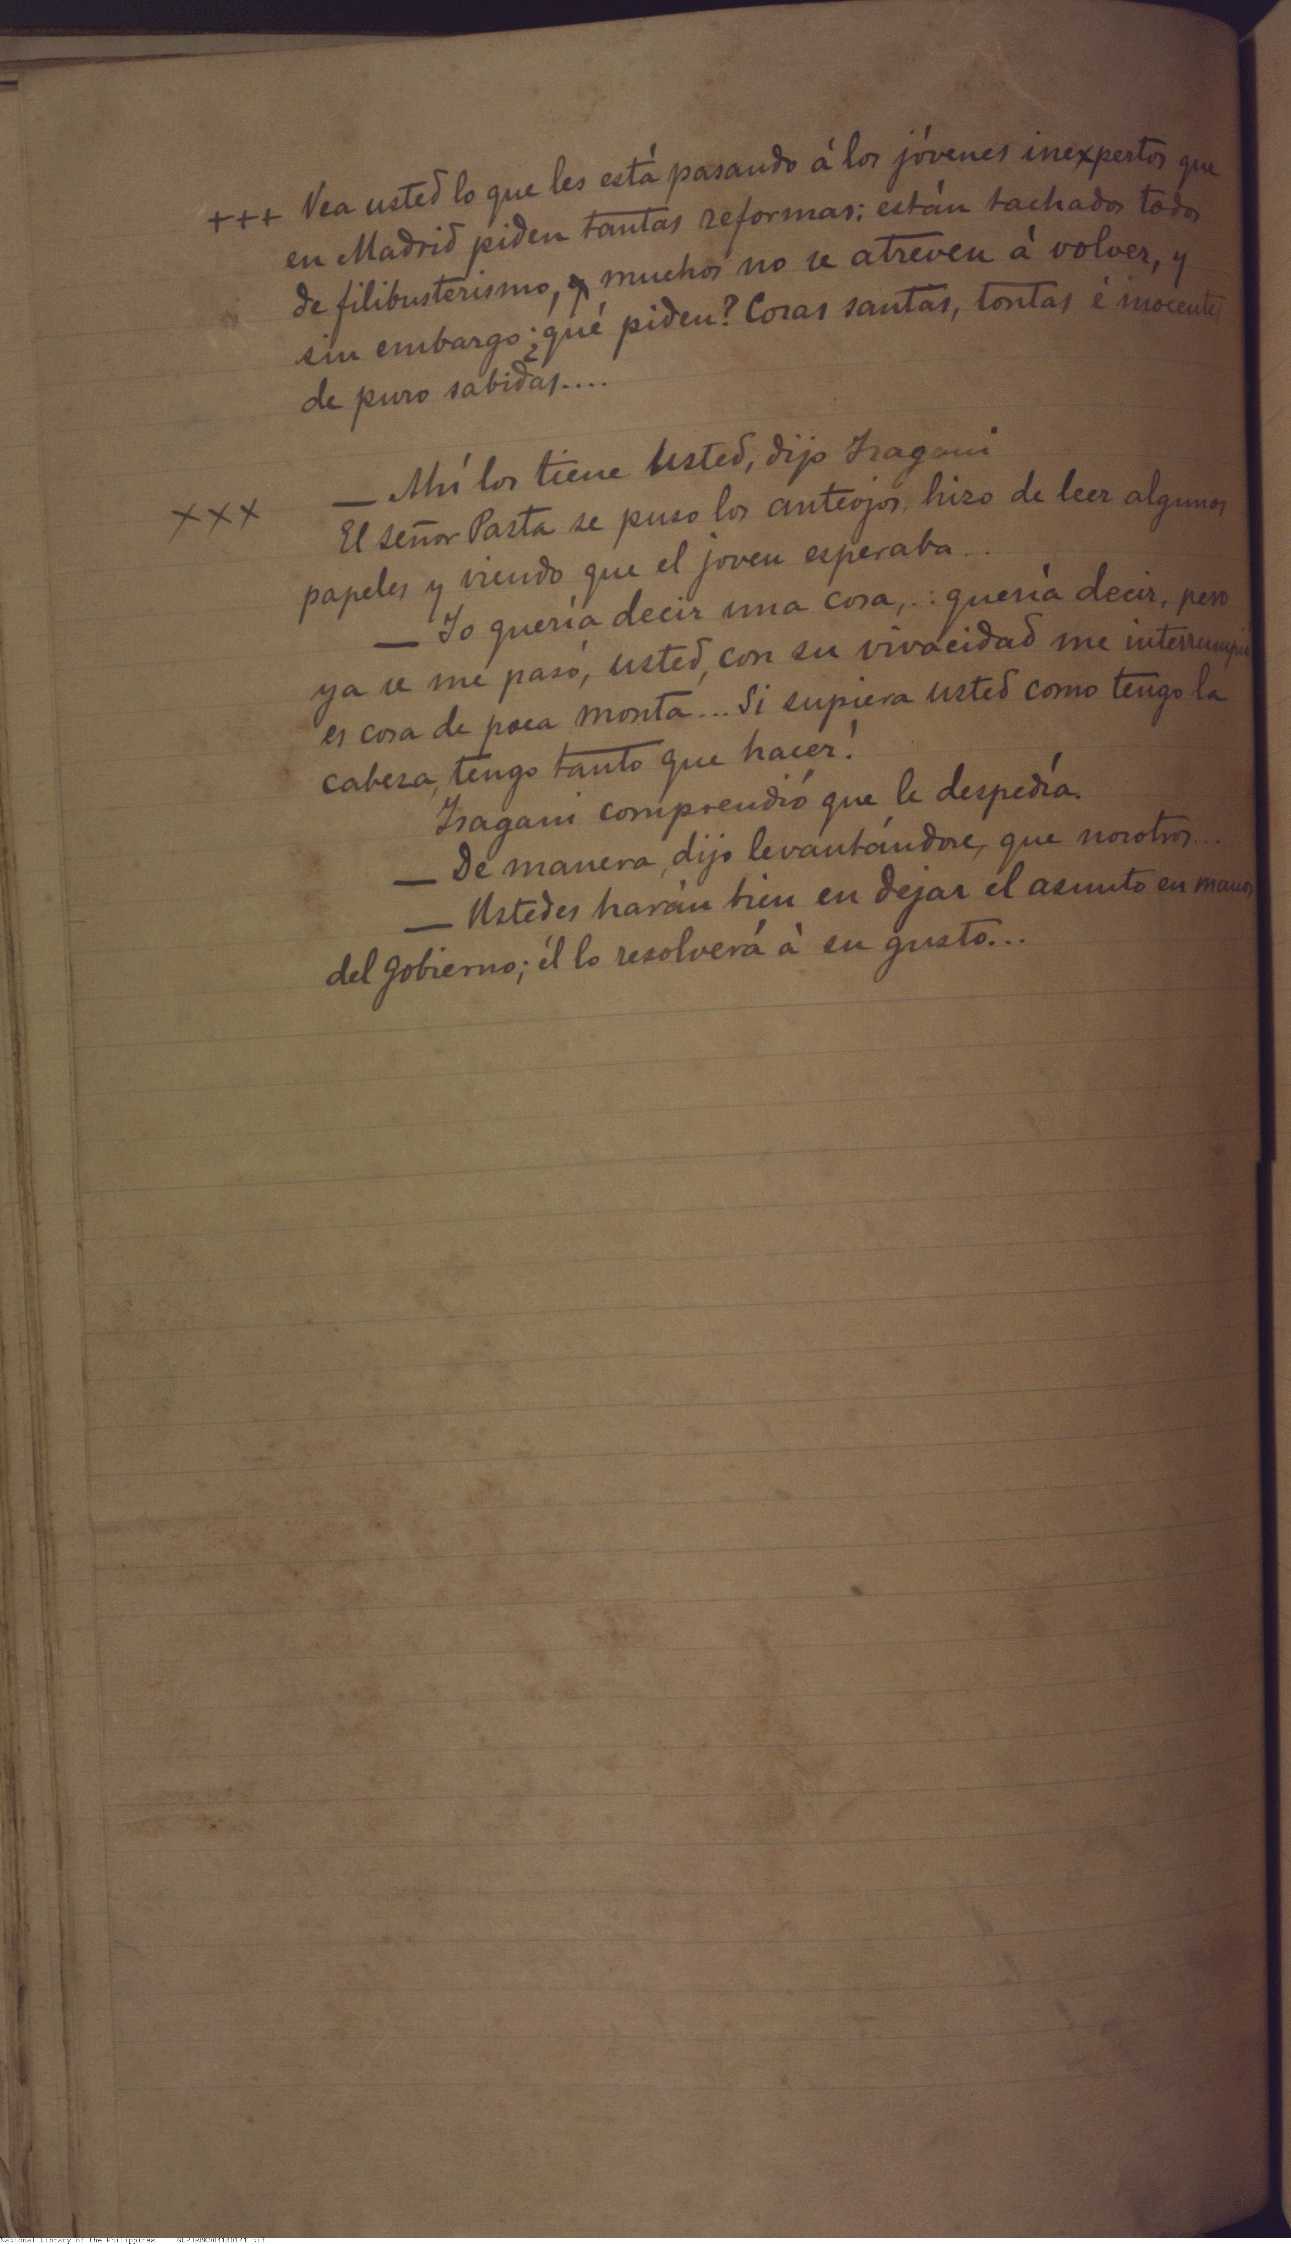 +++ Vea usted lo que les está pasando á los jóvenes inexpertos que
en Madrid piden tantas reformas: están tachados todos
de filibusterismo, y muchos no se atreven á volver, y
sin embargo ¿qué piden? Cosas santas, tontas é inocentes
de puro sabidas....
— Ahí los tiene Usted, dijo Isagani
xxx El señor Pasta se puso los anteojos, hizo de leer algunos
papeles y viendo que el joven esperaba...
— Yo quería decir una cosa,..: quería decir, pero
ya se me pasó, usted, con su vivacidad me interrumpió
es cosa de poca monta... Si supiera usted como tengo la
cabeza, tengo tanto que hacer!
Isagani comprendió que le despedía.
— De manera, dijo levantándose, que nosotros...
— Ustedes harán bien en dejar el asunto en manos
del Gobierno; él lo resolverá à su gusto...
National Library of the Philippines